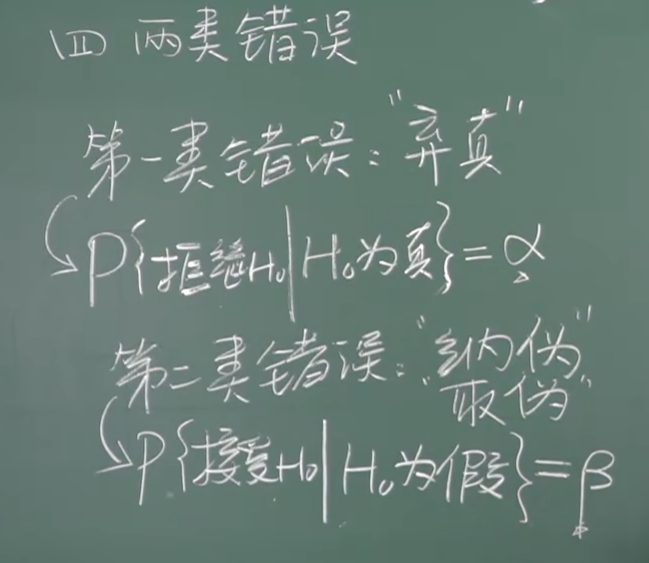 四 两类错误
第一类错误："弃真"
P{拒绝H₀|H₀为真}=α
第二类错误："纳伪"
"取伪"
P{接受H₀|H₀为假}=β